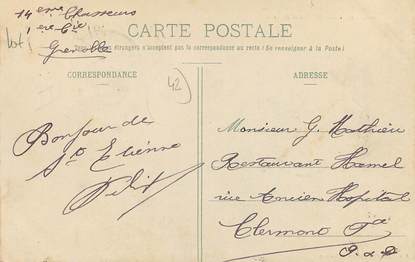 14eme Chasseurs
1ere Cie
Grenoble
lot 1
CARTE POSTALE
Tous les pays étrangers n'acceptent pas la correspondance au recto (Se renseigner à la Poste)
CORRESPONDANCE
42
ADRESSE
Bonjour de
St Etienne
Monsieur G. Mathieu
Restaurant Hamel
rue Ancien Hopital
Clermont Fd
P. de D